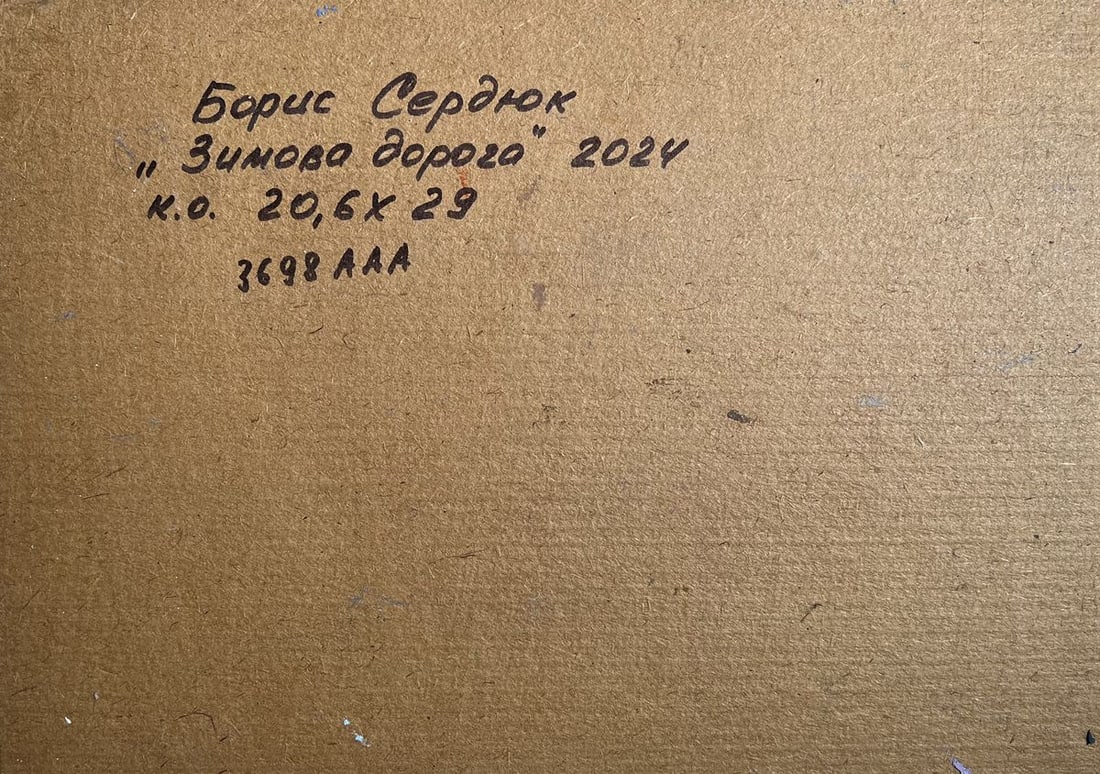 Борис Сердюк
„Зимова дорога" 2024
к.о. 20,6 х 29
3698 ААА